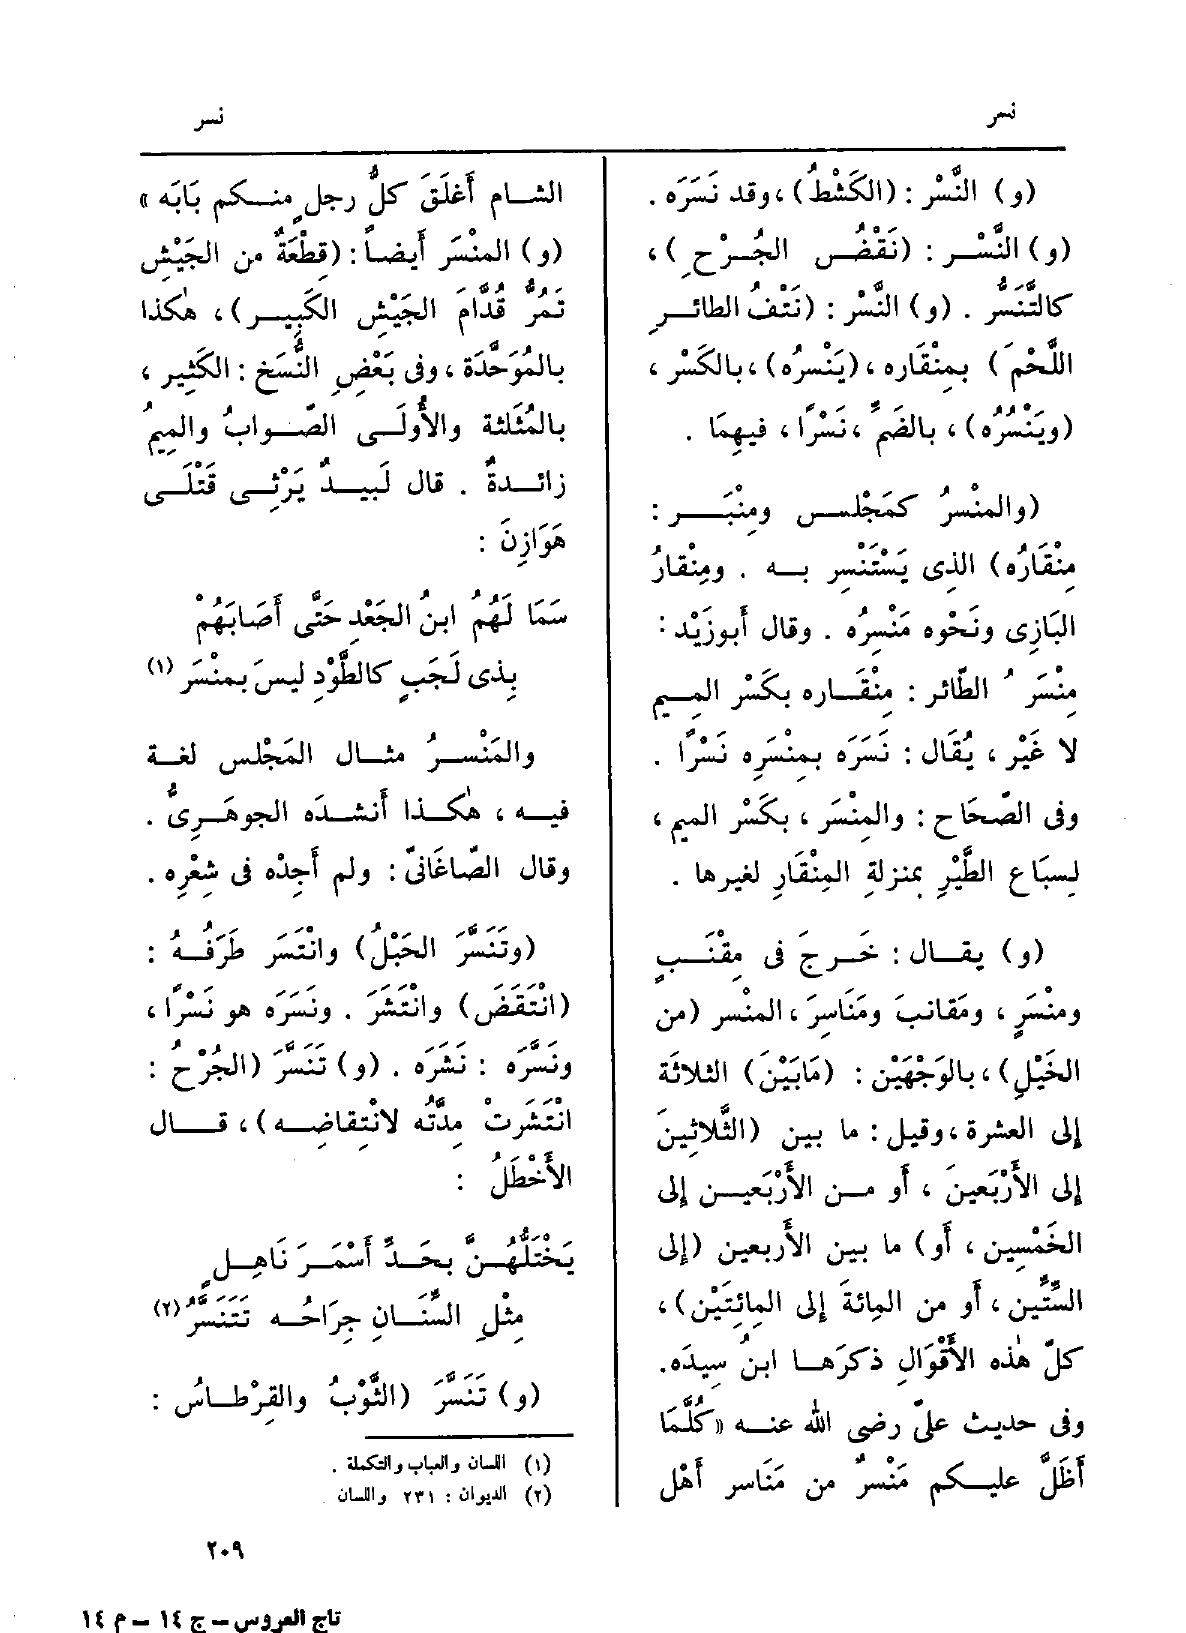 نسر
نسر
(و) النَّسْر : (الكَشْطُ)، وقد نَسَرَه .
(و) النَّسْر : (نَقْضُ الجُرْحِ)،
كالتَّنَسُّرِ . (و) النَّسْر : (نَتْفُ الطائرِ
اللَّحْمَ) بمِنْقاره، (يَنْسِرُه)، بالكَسْر،
(ويَنْسُرُه)، بالضَمِّ، نَسْرًا، فيهِمَا .
(والمنْسرُ كمَجْلس ومِنْبَر :
مِنْقَارُه) الذى يَسْتَنْسِر بـه . ومِنْقارُ
البَازِى ونَحْوِه مَنْسِرُه . وقال أَبوزَيْد :
مِنْسَرُ الطّائر : مِنْقَاره بكَسْر المِيم
لا غَيْر، يُقَال : نَسَرَه بمِنْسَرِه نَسْرًا .
وفى الصّحَاح : والمِنْسَر، بكَسْر الميم،
لِسبَاع الطَّيْرِ بمنزلةِ المِنْقَارِ لغيرها .
(و) يقـال : خَـرجَ فى مِقْنَبٍ
ومنْسَرٍ، ومَقانبَ ومَنَاسِرَ، المنْسر (من
الخَيْلِ)، بالوَجْهَيْن : (مَابَيْنَ) الثلاثَة
إلى العشرة، وقيل : ما بين (الثَّلاثِينَ
إلى الأَرْبَعينَ، أَو من الأَرْبَعيـن إلى
الخَمْسِين، أَو) ما بين الأَربعين (إلى
السِّتِّين، أَو من المِائَةَ إلى المِائِتَيْن)،
كلّ هٰذه الأَقْوَالِ ذكرَهـا ابنُ سِيدَه.
وفى حديث علىّ رضى الله عنـه «كُلَّمَا
أَظَلَّ عليـكم مَنْسرٌ من مَنَاسر أَهْل
الشـام أَغلَقَ كلُّ رجلٍ منـكم بَابَه»
(و) المنْسَر أَيضـاً : (قِطْعَةٌ من الجَيْش
تَمُرُّ قُدَّامَ الجَيْشِ الكَبِيـر)، هٰكذا
بالمُوَحَّدَة، وفى بَعْضِ النُّسَخ : الكَثِير،
بالمُثَلثة والأُولَـى الصّوابُ والمِيمُ
زائـدةٌ . قال لَبيـدٌ يَرْثِى قَتْلَـى
هَوَازِنَ :
سَمَا لَهُمُ ابنُ الجَعْدِ حَتَّى أَصَابَهُمْ
بِذى لَجَبٍ كالطَّوْدِ ليسَ بمنْسَر (١)
والمَنْسـرُ مثـال المَجْلس لغـة
فيـه، هٰكـذا أَنشـدَه الجوهَـرِىُّ .
وقال الصّاغَانىّ : ولم أَجِدْه فى شِعْرِه .
(وتَنَسَّرَ الحَبْلُ) وانْتَسَر طَرَفُـهُ :
(انْتَقَضَ) وانْتَشَرَ . ونَسَرَه هو نَسْرًا،
ونَسَّرَه : نَشَرَه . (و) تَنَسَّرَ (الجُرْحُ :
انْتَشَرتْ مِدَّتُه لانْتِقاضِـه)، قـال
الأَخْطَلُ :
يَخْتَلُّهُـنَّ بحَـدِّ أَسْمَـرَ نَاهِـلٍ
مِثْلِ السِّنَـانِ جِرَاحُـه تَتَنَسَّرُ (٢)
(و) تَنَسَّرَ (الثَّوْبُ والقِرْطـاسُ :
(١) اللسان والعباب والتكملة .
(٢) الديوان : ٢٣١ واللسان
٢٠٩
تاج العروس – ج ١٤ – م ١٤